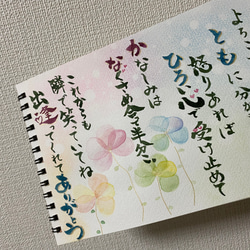 よろこ
に分
とも
怒りあれば
ひろい心で受け止めて
かなしみは
なぐさめ合って半分に
これからも
隣で笑っていてね
出逢ってくれて
ありがとう